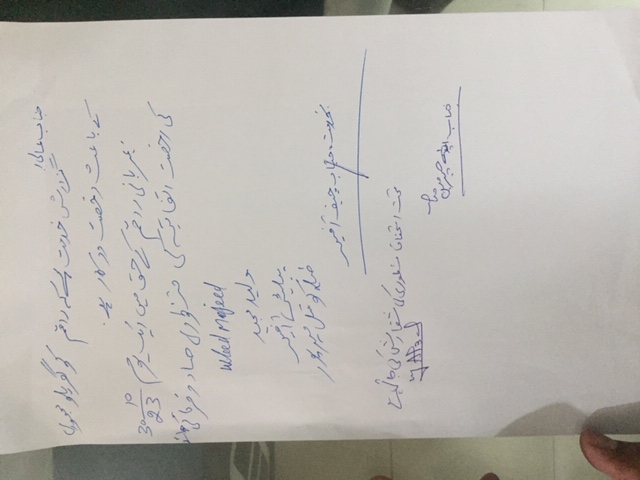 جناب عالی!
گزارش خدمت ہے کہ راقم کو گھریلو مجبوری
کے باعث رخصت درکار ہے۔
مہربانی راقم کے حق میں ایک یوم 30 10/23
کی رخصت اتفاقیہ کی منظوری صادر فرمائی جائے
Waleed Majeed
ولید مجید
پبلسٹی آفیسر
ضلع کونسل میرپور
بخدمت جناب چیف آفیسر
تحت استحقاق منظوری کی سفارش کی جاتی ہے
جناب چیرمین صاحب